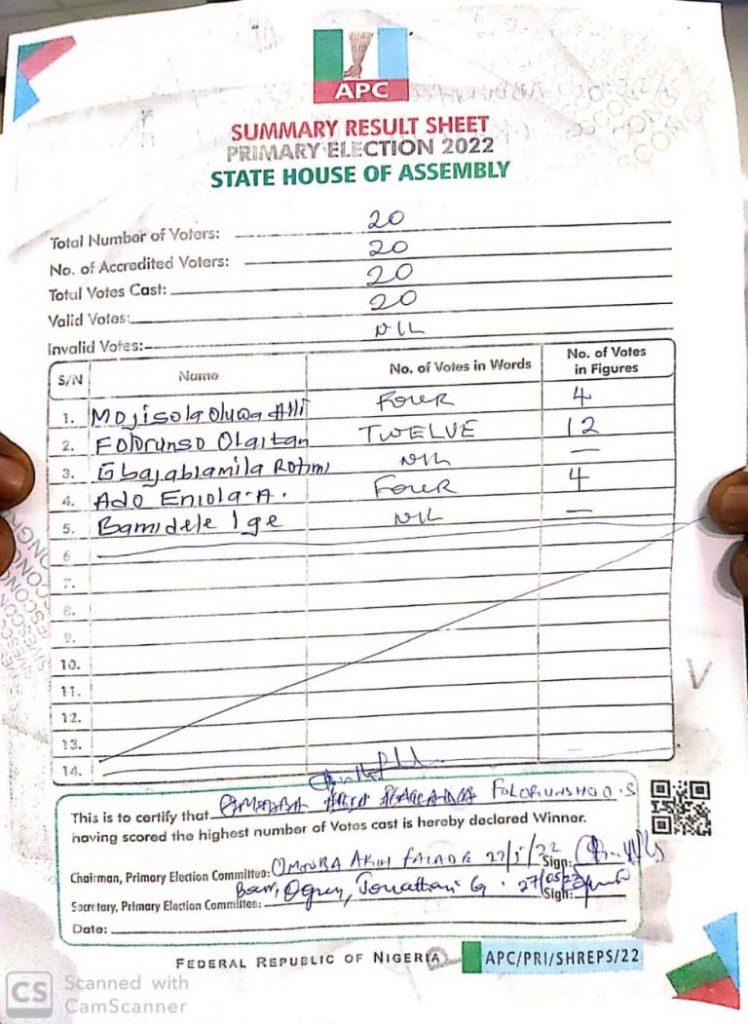 APC
SUMMARY RESULT SHEET
PRIMARY ELECTION 2022
STATE HOUSE OF ASSEMBLY
Total Number of Voters: 20
No. of Accredited Voters: 20
Total Votes Cast: 20
Valid Votes: 20
Invalid Votes: NIL
S/N Name No. of Votes in Words No. of Votes in Figures
1. Mojisolaoluwa Alli FOUR 4
2. Folorunso Olaitan TWELVE 12
3. Gbajabiamila Rotimi NIL —
4. Ado Eniola-A. FOUR 4
5. Bamidele Ige NIL —
6.
7.
8.
9.
10.
11.
12.
13.
14.
This is to certify that FOLORUNSHO O.S
having scored the highest number of Votes cast is hereby declared Winner.
Chairman, Primary Election Committee: OMOOBA AKIN FALADE 27/5/22 Sign:
Secretary, Primary Election Committee: Jonathan G. 27/05/22 Sign:
Date:
FEDERAL REPUBLIC OF NIGERIA
APC/PRI/SHREPS/22
V
CS Scanned with
CamScanner